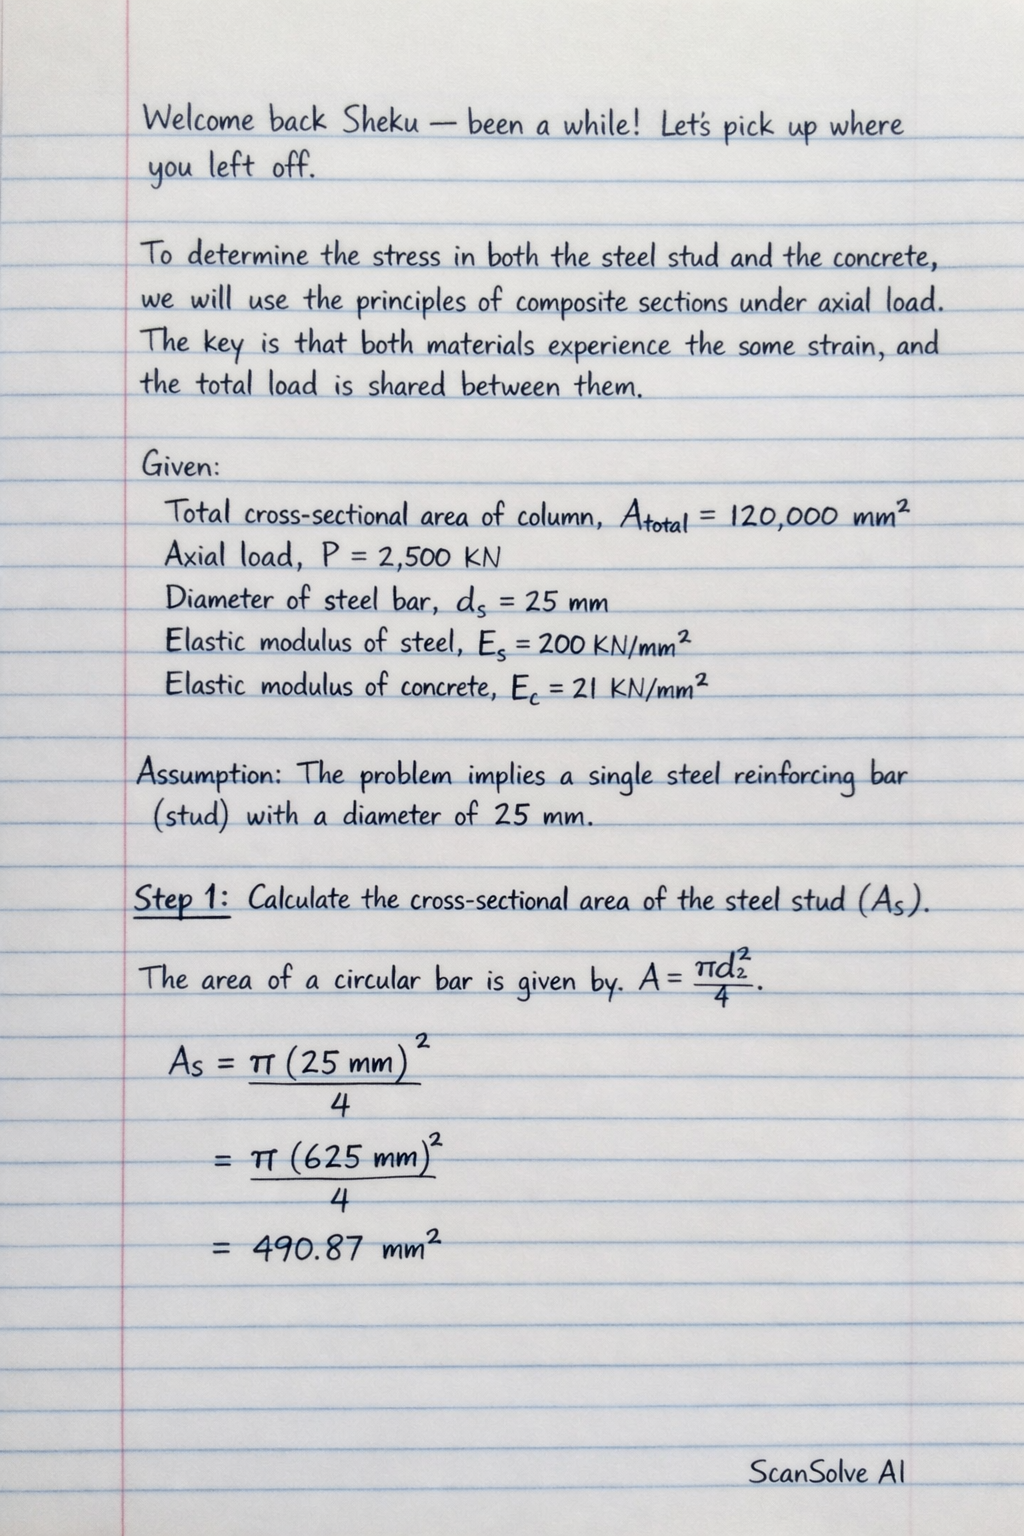 Welcome back Sheku — been a while! Let's pick up where
you left off.
To determine the stress in both the steel stud and the concrete,
we will use the principles of composite sections under axial load.
The key is that both materials experience the some strain, and
the total load is shared between them.
Given:
Total cross-sectional area of column, A_total = 120,000 mm²
Axial load, P = 2,500 KN
Diameter of steel bar, d_s = 25 mm
Elastic modulus of steel, E_s = 200 KN/mm²
Elastic modulus of concrete, E_c = 21 KN/mm²
Assumption: The problem implies a single steel reinforcing bar
(stud) with a diameter of 25 mm.
Step 1: Calculate the cross-sectional area of the steel stud (A_s).
The area of a circular bar is given by. A = πd₂²/4.
A_s = π (25 mm)²/4
= π (625 mm)²/4
= 490.87 mm²
ScanSolve AI